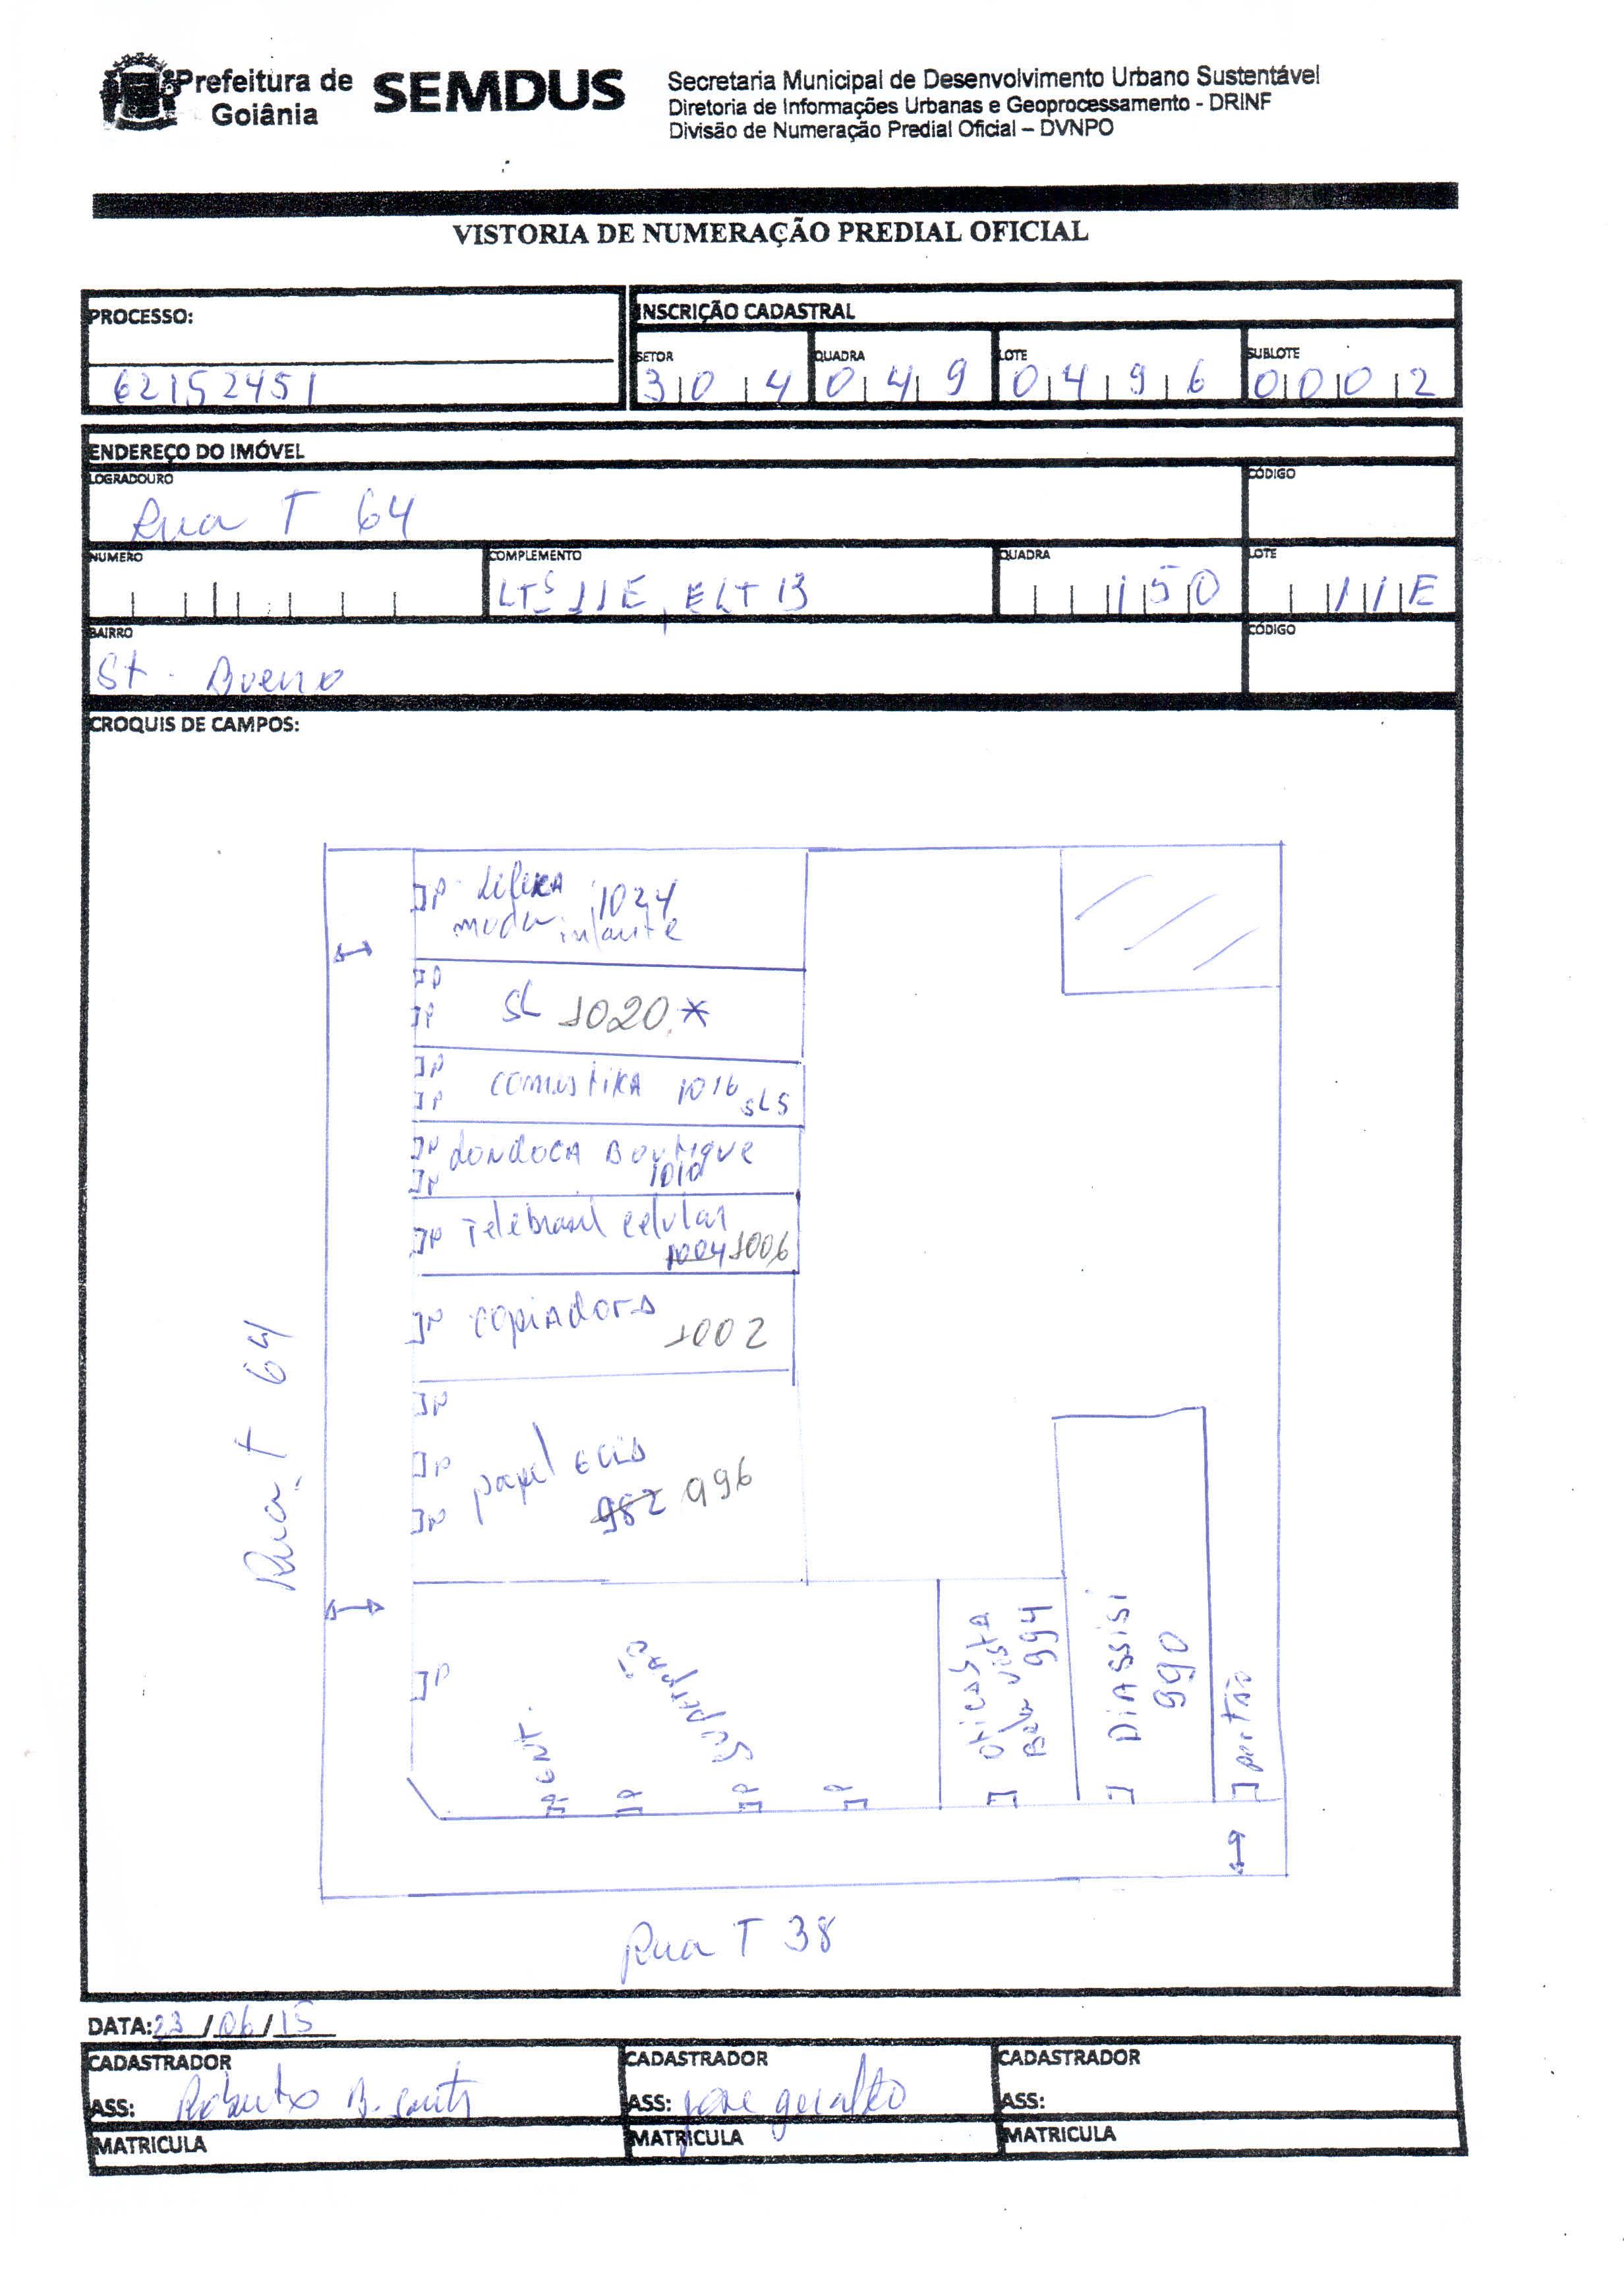 Prefeitura de Goiânia
SEMDUS
Secretaria Municipal de Desenvolvimento Urbano Sustentável
Diretoria de Informações Urbanas e Geoprocessamento - DRINF
Divisão de Numeração Predial Oficial – DVNPO
VISTORIA DE NUMERAÇÃO PREDIAL OFICIAL
PROCESSO:
62152451
INSCRIÇÃO CADASTRAL
SETOR QUADRA LOTE SUBLOTE
304 049 0496 0002
ENDEREÇO DO IMÓVEL
LOGRADOURO CÓDIGO
Rua T 64
NUMERO COMPLEMENTO QUADRA LOTE
LTS 11E, E LT 13 150 11E
BAIRRO CÓDIGO
St. Bueno
CROQUIS DE CAMPOS:
P 1024
moda infante
P
P SL 1020 *
P
P 1016 SLS
P DONDOCA BOUTIQUE
P 1010
P Telebrasil celular
1004 1006
P copiadora
1002
P
P papel
P 982 996
Rua T 64
P
P P P
Oticas
Boa Vista
994
DIASSISI
990
portão
Rua T 38
DATA: 23/06/15
CADASTRADOR CADASTRADOR CADASTRADOR
ASS: Roberto B. ASS: jose geraldo ASS:
MATRICULA MATRICULA MATRICULA